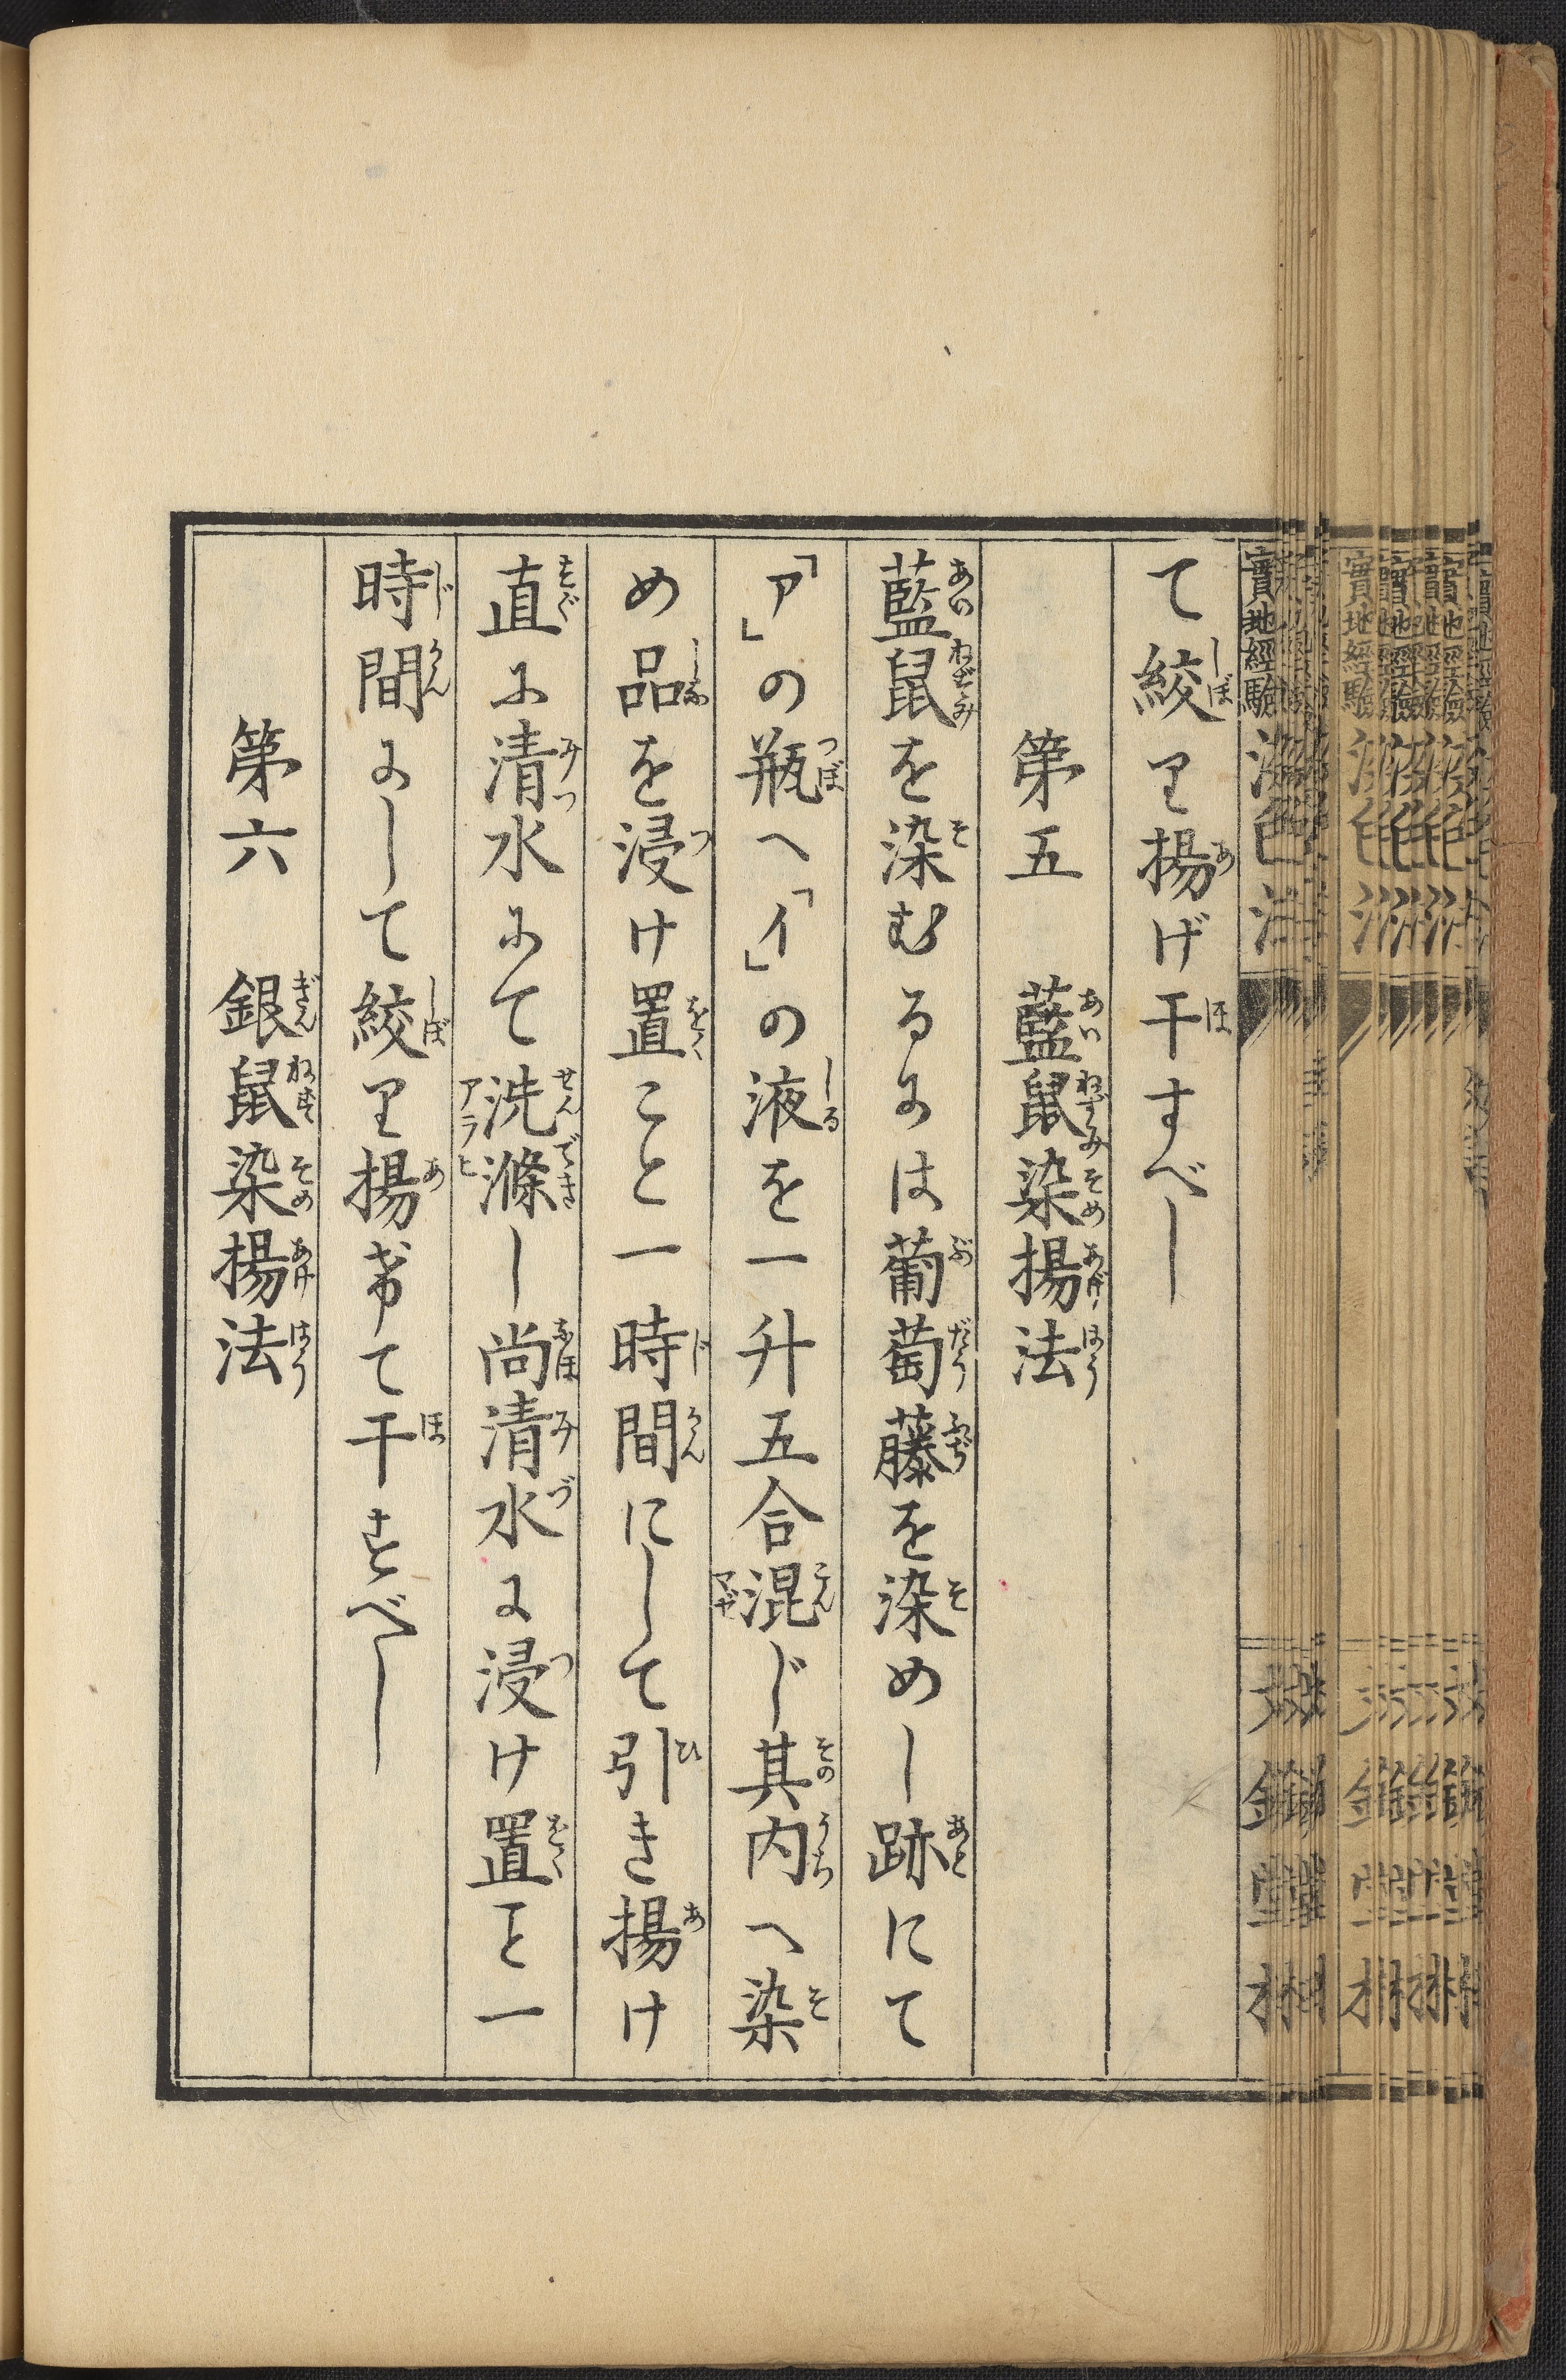 て絞り揚げ干すべし
第五　藍鼠染揚法
藍鼠を染むるには葡萄藤を染めし跡にて
「ア」の瓶へ「イ」の液を一升五合混じ其内へ染
め品を浸け置こと一時間にして引き揚け
直に清水にて洗滌し尚清水に浸け置こと一
時間にして絞り揚げて干すべし
第六　銀鼠染揚法
實地經驗染色法